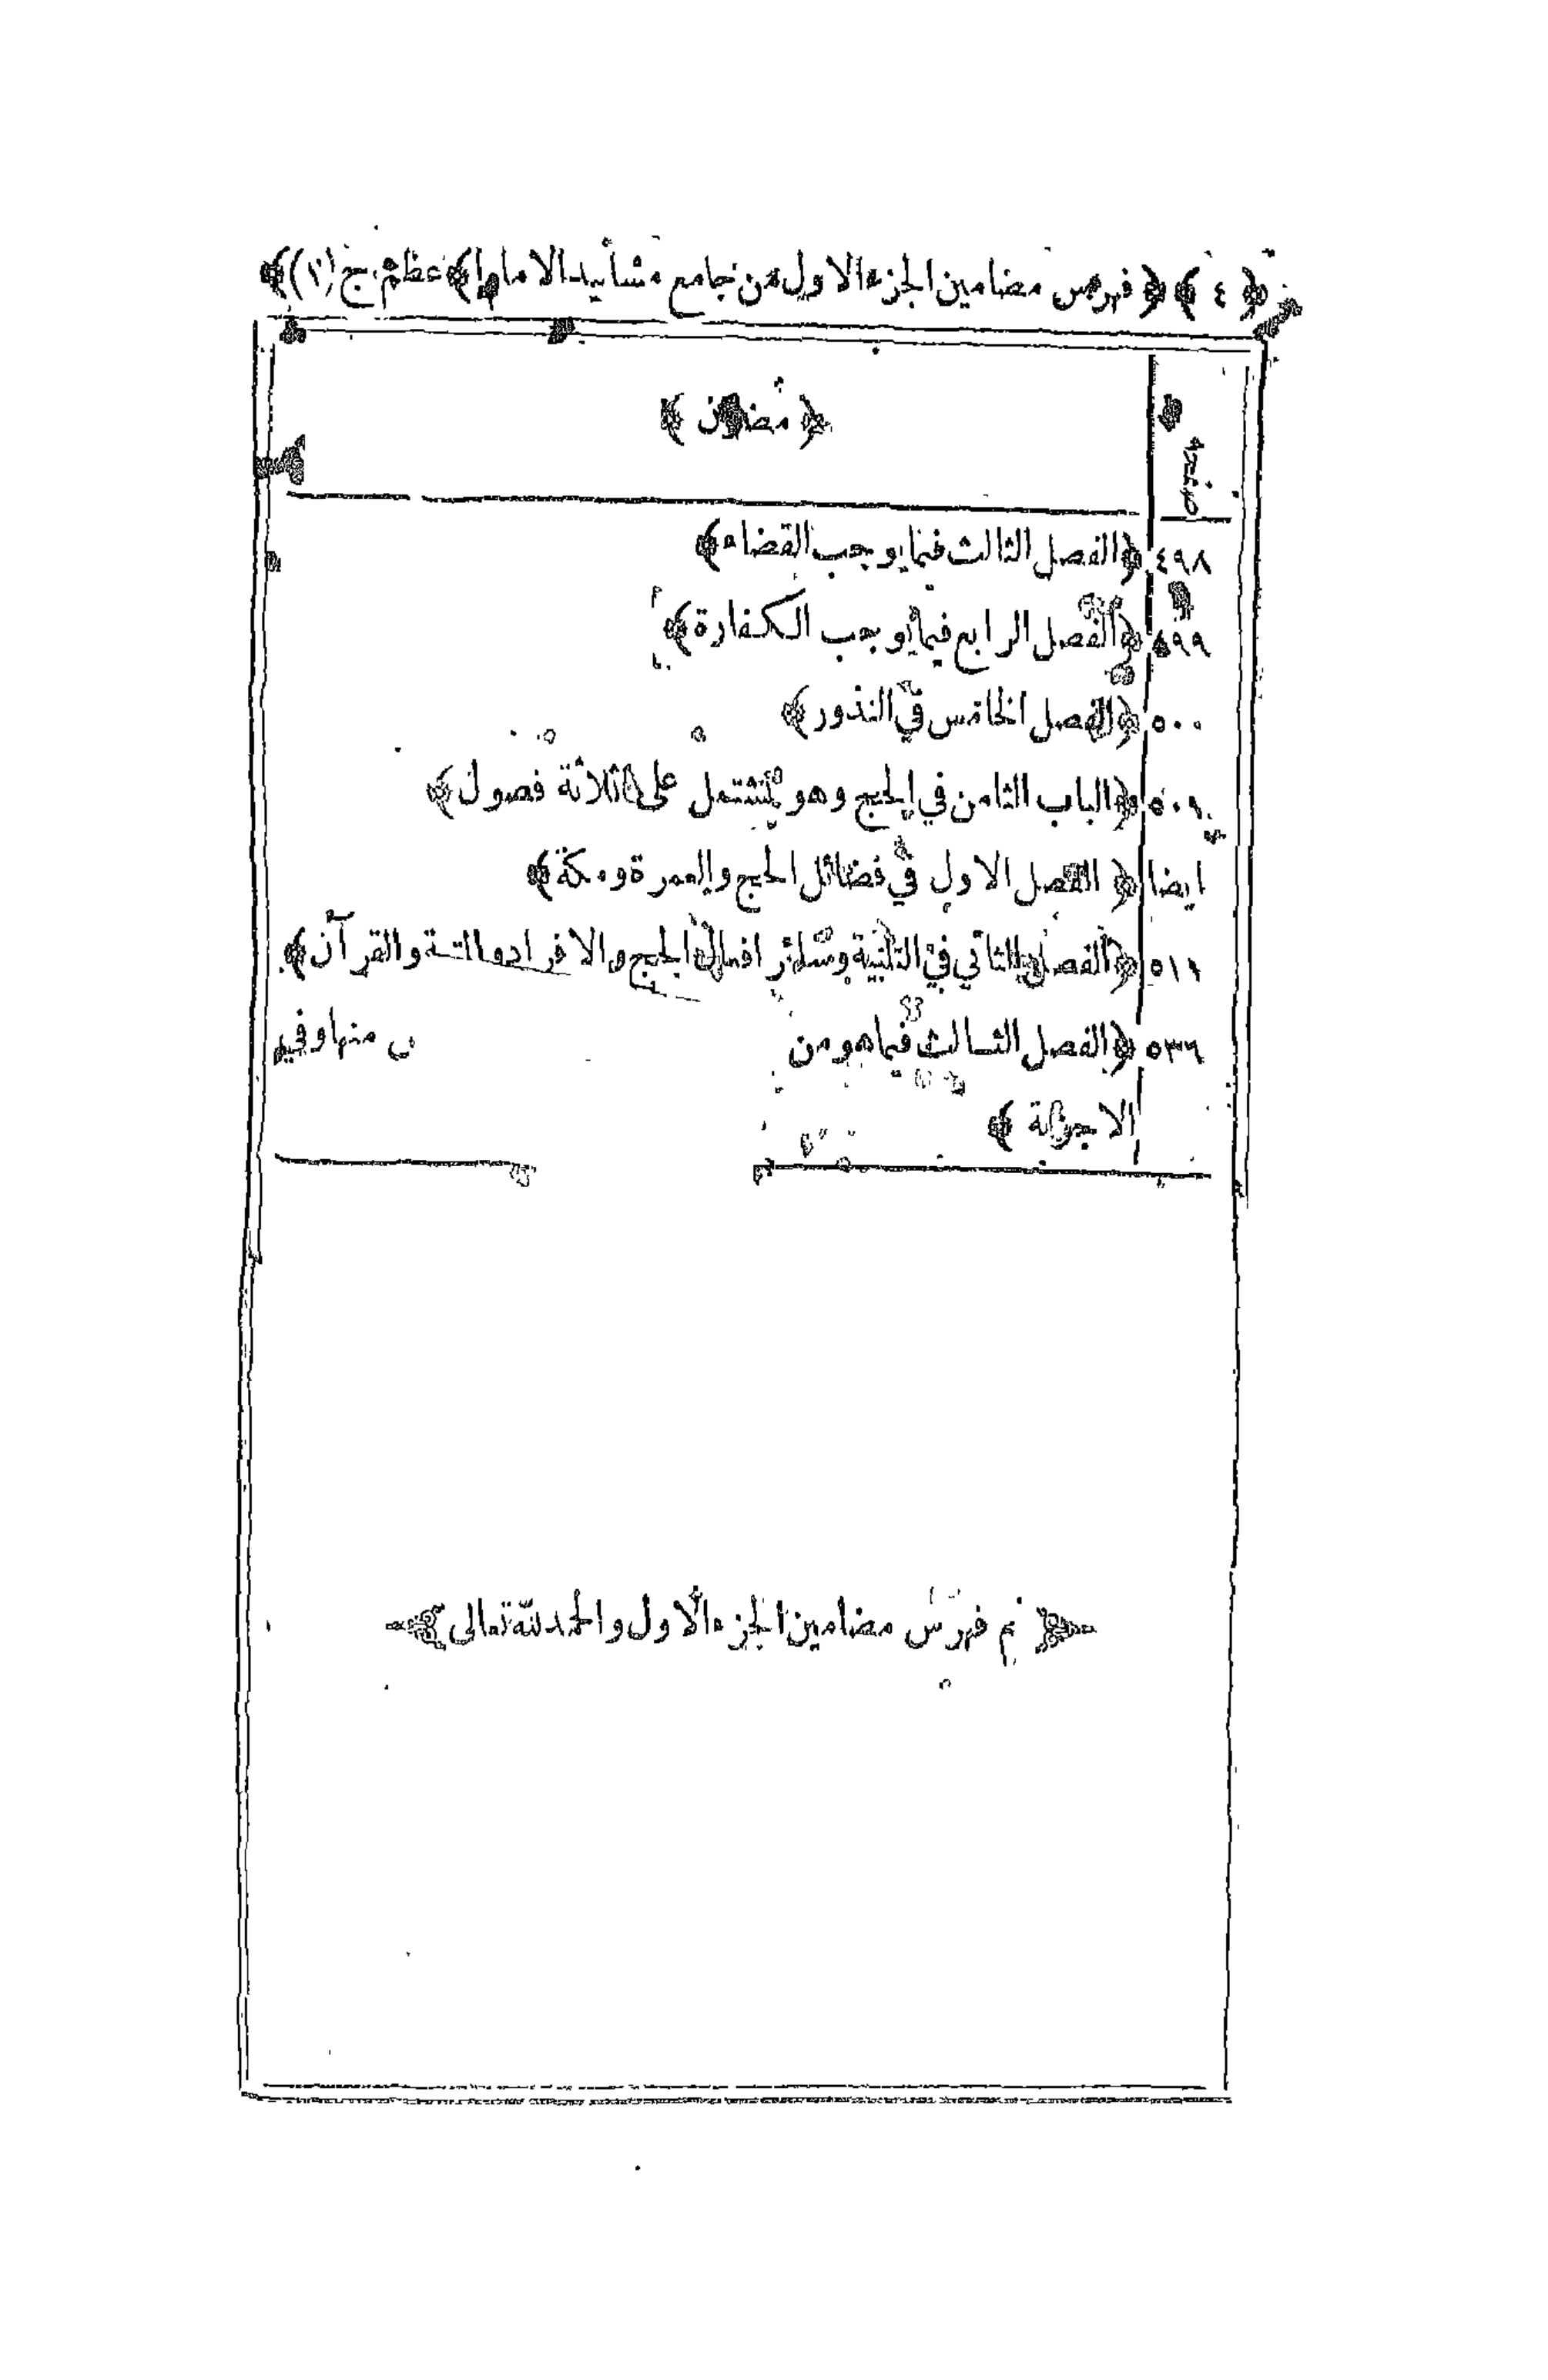 ﴿ ٤ ﴾ ﴿ فهرس مضامين الجزء الاول من جامع مسانيد الامام الاعظم ج (١) ﴾
صفحه ﴿ مضمون ﴾
٤٩٨ ﴿ الفصل الثالث فيما يوجب القضاء ﴾
٤٩٩ ﴿ الفصل الرابع فيما يوجب الكفارة ﴾
٥٠٠ ﴿ الفصل الخامس في النذور ﴾
﴿ الباب الثامن في الحج وهو يشتمل على ثلاثة فصول ﴾
ايضا ﴿ الفصل الاول في فضائل الحج والعمرة ومكة ﴾
٥١١ ﴿ الفصل الثاني في التلبية وسائر افعال الحج والافراد والقرآن ﴾
٥٣٦ ﴿ الفصل الثالث فيما هو من منها وفي
الاجزئة ﴾
﴿ تم فهرس مضامين الجزء الاول والحمد لله تعالى ﴾